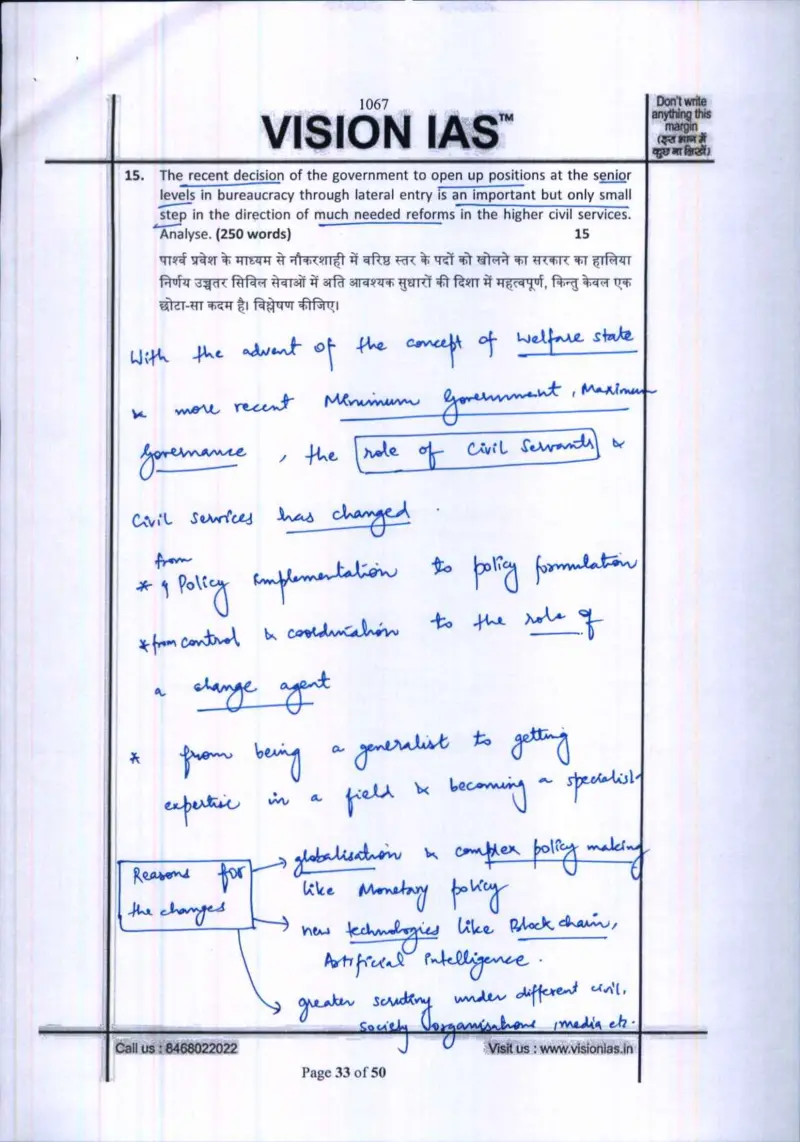 1067
VISION IAS™
Don't write
anything this
margin
(इस भाग में
कुछ ना लिखें)
15. The recent decision of the government to open up positions at the senior
levels in bureaucracy through lateral entry is an important but only small
step in the direction of much needed reforms in the higher civil services.
Analyse. (250 words) 15
पार्श्व प्रवेश के माध्यम से नौकरशाही में वरिष्ठ स्तर के पदों को खोलने का सरकार का हालिया
निर्णय उच्चतर सिविल सेवाओं में अति आवश्यक सुधारों की दिशा में महत्वपूर्ण, किन्तु केवल एक
छोटा-सा कदम है। विश्लेषण कीजिए।
With the advent of the concept of welfare state
& more recent Minimum Government, Maximum
Governance, the role of Civil Servants &
Civil Services has changed.
from
* Policy Implementation to policy formulation
* from control & coordination to the role of
a change agent
* from being a generalist to getting
expertise in a field & becoming a specialist.
Reasons for
the changes
globalisation & complex policy making
like Monetary policy
new technologies like Block chain,
Artificial Intelligence.
greater scrutiny under different civil
society organisations, media etc.
Call us : 8468022022
Visit us : www.visionias.in
Page 33 of 50